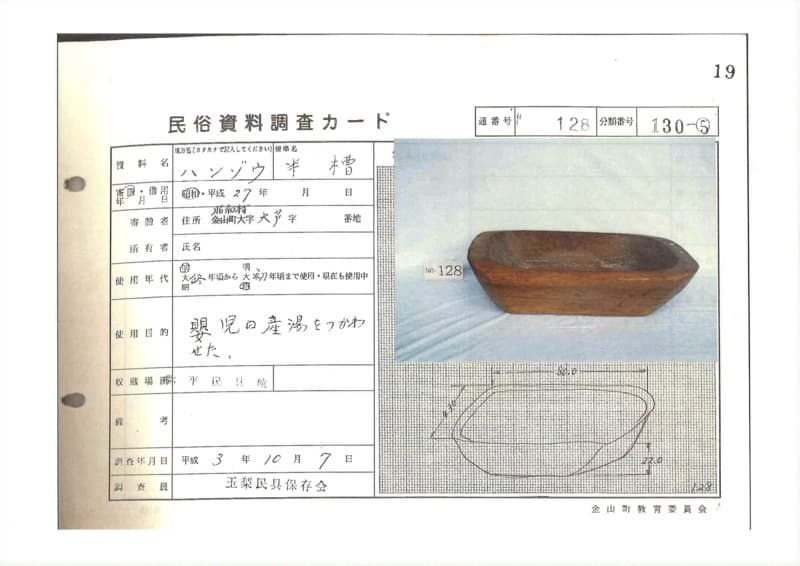 19
民俗資料調査カード
通番号 128 分類番号 130-⑤
資料名
地方名(カタカナで記入してください) 標準名
ハンゾウ 半槽
寄贈・借用年月日 昭和・平成 27年 月 日
寄贈者 住所 昭和村 金山町大字 大芦 字 番地
所有者 氏名
使用年代 明大昭 終年頃から 明大昭 初年頃まで使用・現在も使用中
使用目的 嬰児の産湯をつかわ
せた。
収蔵場所 平民具館
備考
調査年月日 平成 3年 10月 7日
調査員 玉梨民具保存会
NO. 128
80.0
22.0
128
金山町教育委員会